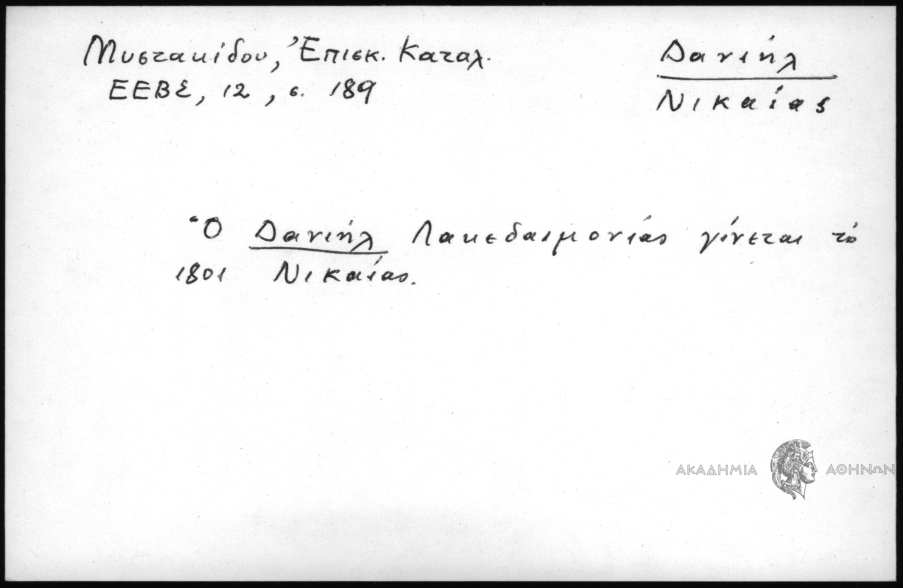 Μυστακίδου, Ἐπισκ. Καταλ.
ΕΕΒΣ, 12, σ. 189
Δανιήλ
Νικαίας
Ὁ Δανιήλ Λακεδαιμονίας γίνεται τὸ
1801 Νικαίας.
ΑΚΑΔΗΜΙΑ ΑΘΗΝΩΝ